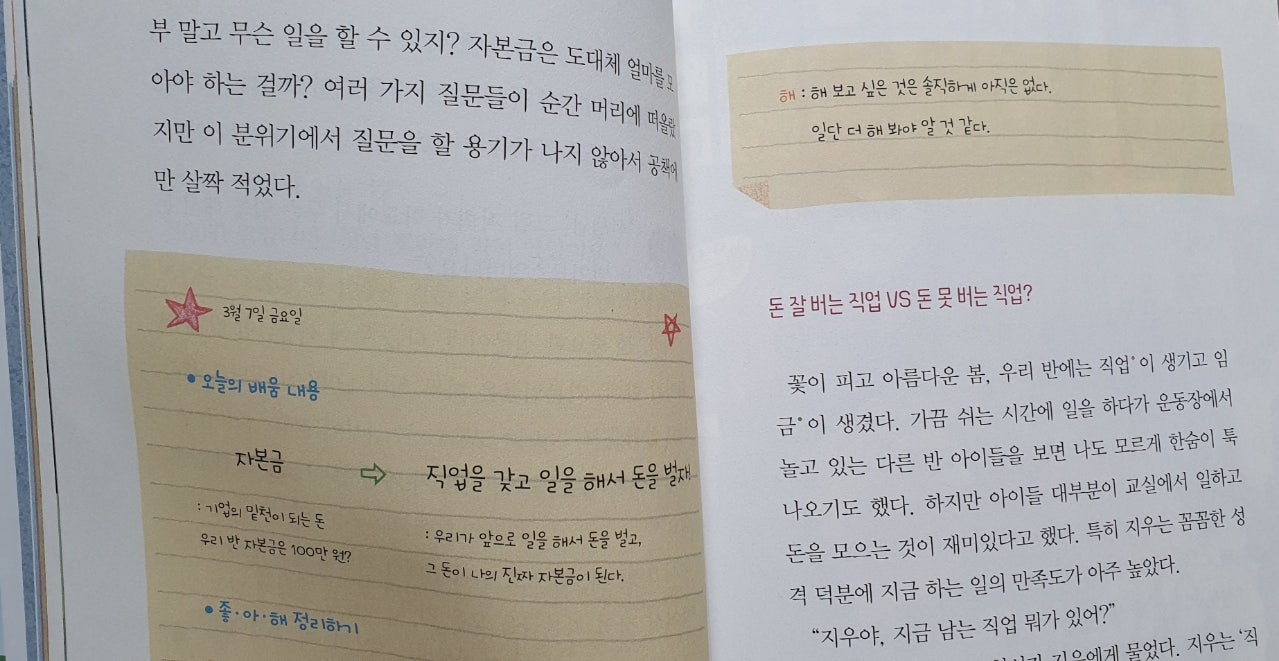 부 말고 무슨 일을 할 수 있지? 자본금은 도대체 얼마를 모
아야 하는 걸까? 여러 가지 질문들이 순간 머리에 떠올랐
지만 이 분위기에서 질문을 할 용기가 나지 않아서 공책에
만 살짝 적었다.
3월 7일 금요일
• 오늘의 배움 내용
자본금 ⇨ 직업을 갖고 일을 해서 돈을 벌자!
: 기업의 밑천이 되는 돈
우리 반 자본금은 100만 원?
: 우리가 앞으로 일을 해서 돈을 벌고,
그 돈이 나의 진짜 자본금이 된다.
• 좋·아·해 정리하기
해 : 해 보고 싶은 것은 솔직하게 아직은 없다.
일단 더 해 봐야 알 것 같다.
돈 잘 버는 직업 VS 돈 못 버는 직업?
꽃이 피고 아름다운 봄, 우리 반에는 직업*이 생기고 임
금*이 생겼다. 가끔 쉬는 시간에 일을 하다가 운동장에서
놀고 있는 다른 반 아이들을 보면 나도 모르게 한숨이 툭
나오기도 했다. 하지만 아이들 대부분이 교실에서 일하고
돈을 모으는 것이 재미있다고 했다. 특히 지우는 꼼꼼한 성
격 덕분에 지금 하는 일의 만족도가 아주 높았다.
“지우야, 지금 남는 직업 뭐가 있어?”
지우에게 물었다. 지우는 ‘직